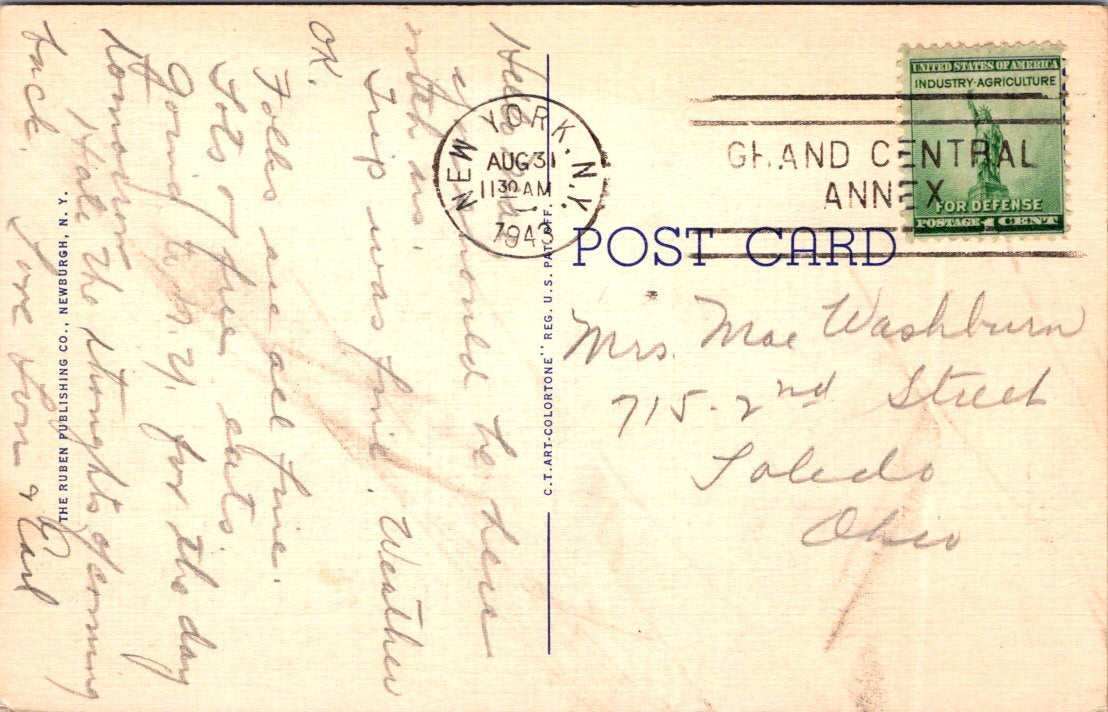 Hello
you should be here
with us.
Trip was fine. Weather
OK.
Folks are all fine.
Lots of fine eats.
Going to N.Y. for the day
tomorrow.
Hate the thoughts of coming
back.
Love & Earl
THE RUBEN PUBLISHING CO., NEWBURGH, N. Y.
C.T. ART-COLORTONE" REG. U.S. PAT. OFF.
NEW YORK, N.Y.
AUG 31
11 30 AM
1943
GRAND CENTRAL
ANNEX
UNITED STATES OF AMERICA
INDUSTRY-AGRICULTURE
FOR DEFENSE
POSTAGE 1 CENT
POST CARD
Mrs. Mae Washburn
715-2nd Street
Toledo
Ohio